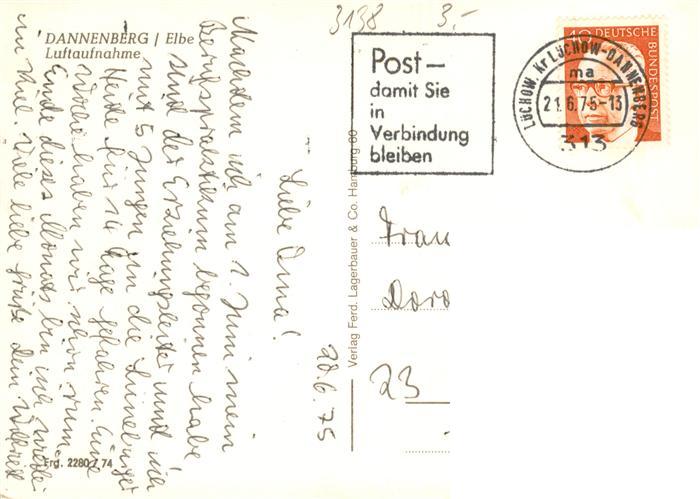 DANNENBERG / Elbe
Luftaufnahme
3138 3.-
Post-
damit Sie
in
Verbindung
bleiben
40 DEUTSCHE
BUNDESPOST
LÜCHOW, Kr LÜCHOW-DANNENBERG
ma
21.6.75-13
313
20.6.75
Liebe Oma!
Nachdem ich am 1. Juni mein
Berufspraktikum begonnen habe
sind der Erziehungsleiter und ich
mit 5 Jungen in die Lüneburger
Heide für 14 Tage gefahren. Eine
Woche haben wir schon rum.
Ende dieses Monats bin ich wieder
in Kiel. Viele liebe Grüße Dein
Verlag Ferd. Lagerbauer & Co. Hamburg 60
Frau
Doro
23
Erg. 2280 / 74